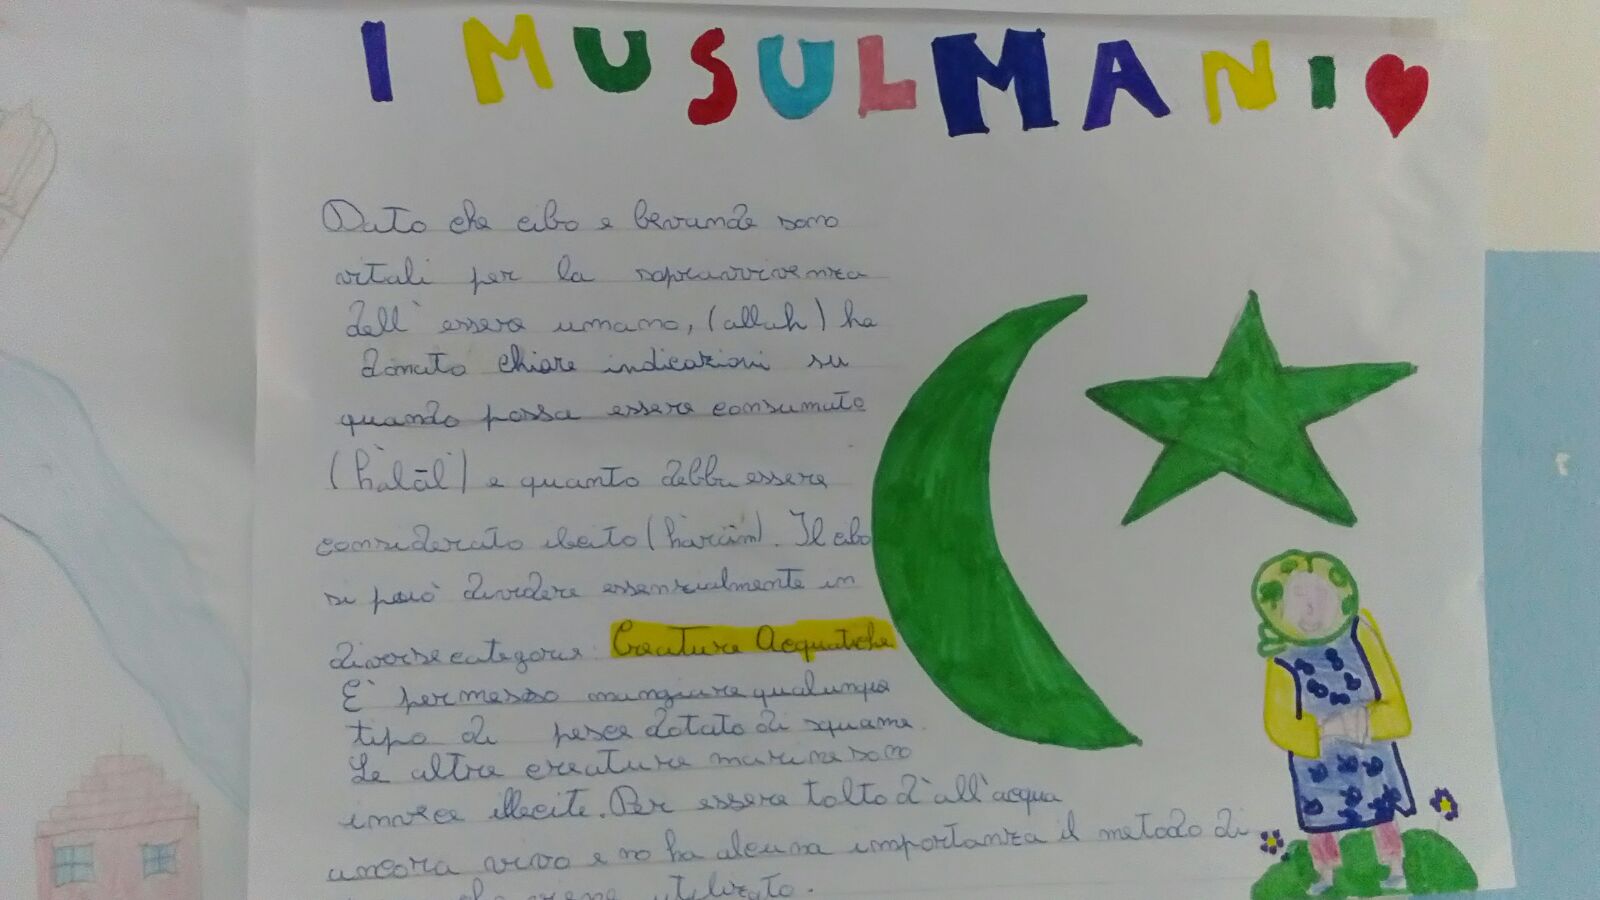 I MUSULMANI
Dato che cibo e bevande sono
vitali per la sopravvivenza
dell'essere umano, (allah) ha
donato chiare indicazioni su
quando possa essere consumato
(hàlāl) e quanto debba essere
considerato illecito (hàrām). Il cibo
si può dividere essenzialmente in
diverse categorie: Creature Acquatiche
E' permesso mangiare qualunque
tipo di pesce dotato di squame.
Le altre creature marine sono
invece illecite. Per essere tolto d'all'acqua
ancora vivo e no ha alcuna importanza il metodo di
che viene utilizzato.